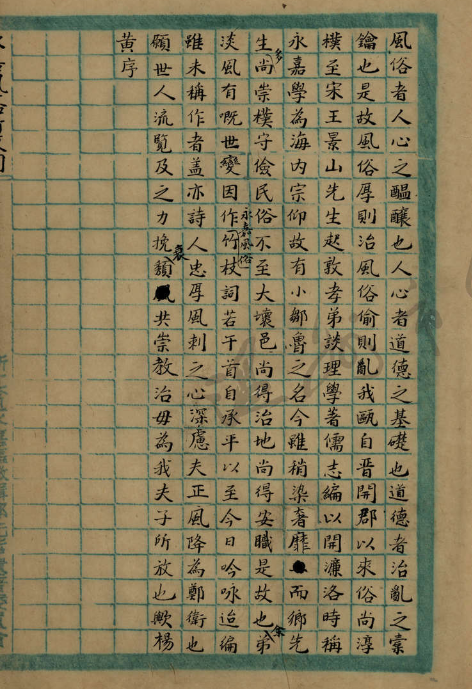 風俗者人心之醖釀也人心者道德之基礎也道德者治亂之橐
鑰也是故風俗厚則治風俗偷則亂我甌自晋開郡以來俗尚淳
樸至宋王景山先生起敦孝弟談理學著儒志編以開濂洛時稱
永嘉學為海内宗仰故有小鄒魯之名今雖稍染奢靡而鄉先
生多尚崇樸守儉民俗不至大壞邑尚得治地尚得安職是故也余弟
淡風有嘅世變因作永嘉風俗竹枝詞若干首自承平以至今日吟咏迨編
雖未稱作者蓋亦詩人忠厚風刺之心深慮夫正風降為鄭衛也
願世人流覽及之力挽衰頹共崇教治毋為我夫子所放也歟楊
黄序